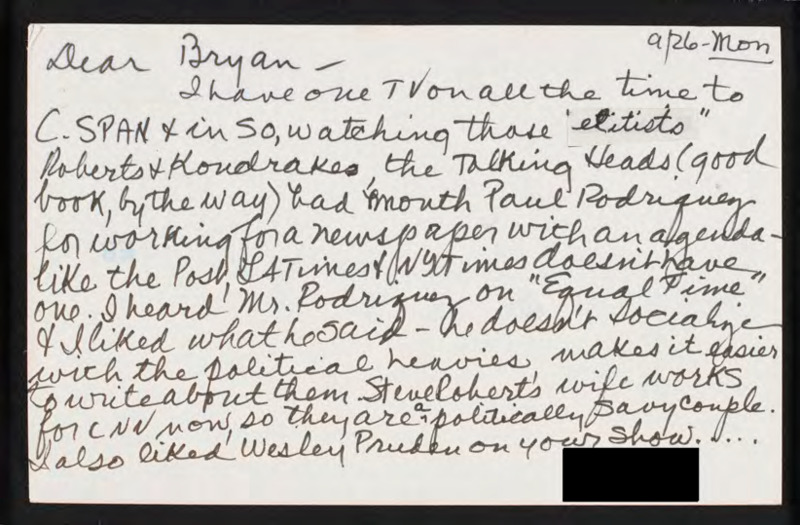 9/26-Mon
Dear Bryan -
I have one TV on all the time to
C. SPAN & in so, watching those "elitists"
Roberts & Kondrakes, the Talking Heads (good
book, by the way) bad mouth Paul Rodriguez
for working for a newspaper with an agenda -
like the Post, LA Times & NY Times doesn't have
one. I heard Mr. Rodriguez on "Equal Time"
& I liked what he said - he doesn't socialize
with the political heavies, makes it easier
to write about them. Steve Roberts wife works
for CNN now, so they are a politically savy couple.
I also liked Wesley Pruden on your show.....